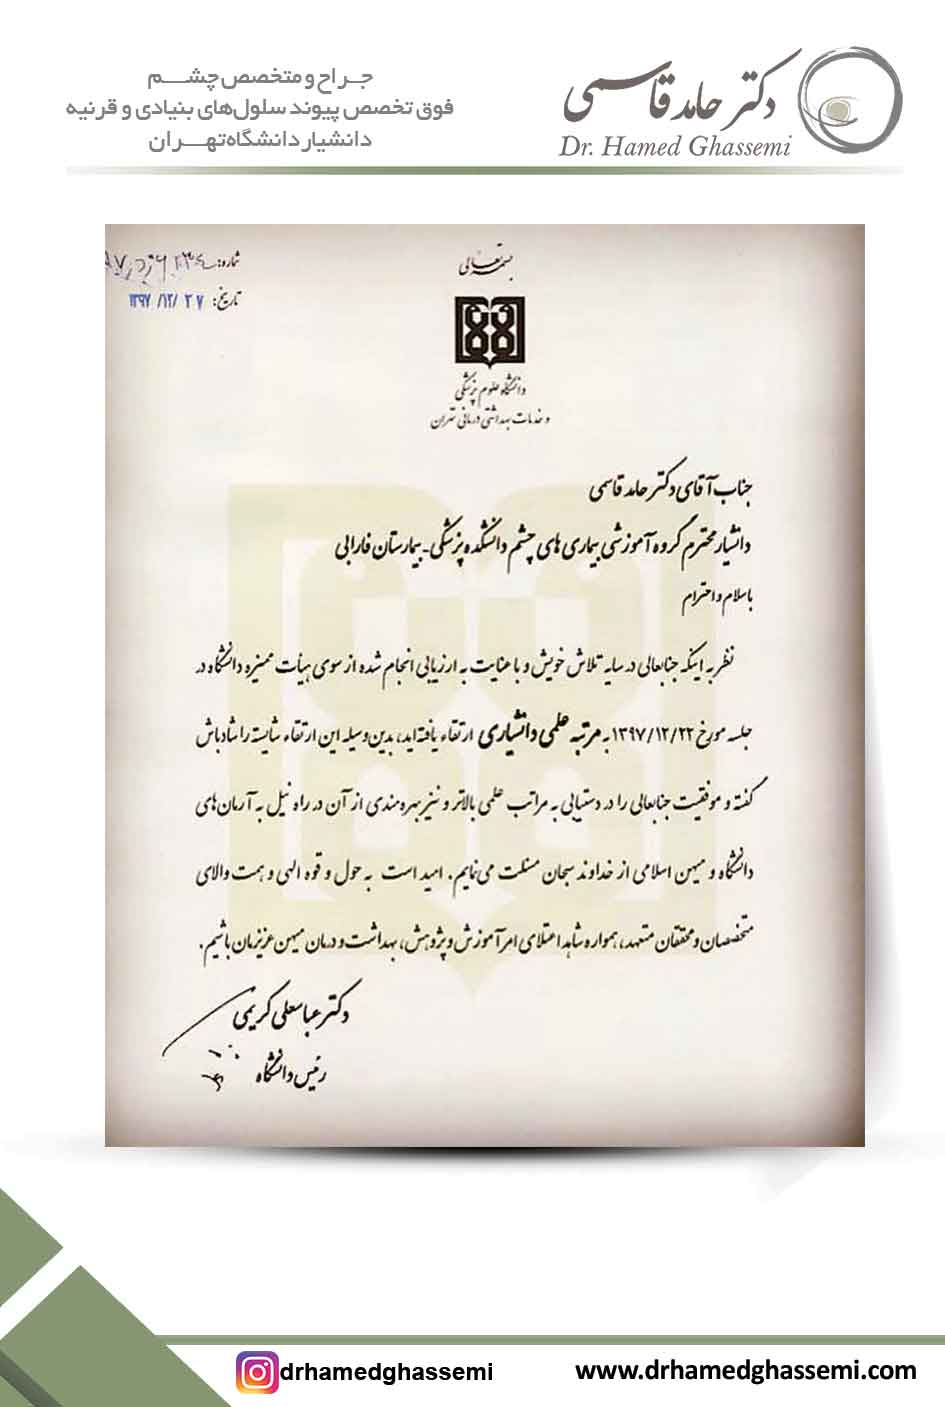 جراح و متخصص چشم
فوق تخصص پیوند سلول‌های بنیادی و قرنیه
دانشیار دانشگاه تهران
دکتر حامد قاسمی
Dr. Hamed Ghassemi
بسمه تعالی
شماره:
تاریخ: ۱۳۹۷/۱۲/۲۷
دانشگاه علوم پزشکی
و خدمات بهداشتی درمانی تهران
جناب آقای دکتر حامد قاسمی
دانشیار محترم گروه آموزشی بیماری های چشم دانشکده پزشکی - بیمارستان فارابی
با سلام و احترام
نظر به اینکه جنابعالی در سایه تلاش خویش و با عنایت به ارزیابی انجام شده از سوی هیأت ممیزه دانشگاه در
جلسه مورخ ۱۳۹۷/۱۲/۲۲ به مرتبه علمی دانشیاری ارتقاء یافته‌اید، بدین وسیله این ارتقاء شایسته را شادباش
گفته و موفقیت جنابعالی را در دستیابی به مراتب علمی بالاتر و نیز بهره مندی از آن در راه نیل به آرمان های
دانشگاه و میهن اسلامی از خداوند سبحان مسئلت می‌نمایم. امید است به حول و قوه الهی و همت والای
متخصصان و محققان متعهد، همواره شاهد اعتلای امر آموزش و پژوهش، بهداشت و درمان میهن عزیزمان باشیم.
دکتر عباسعلی کریمی
رئیس دانشگاه
drhamedghassemi
www.drhamedghassemi.com